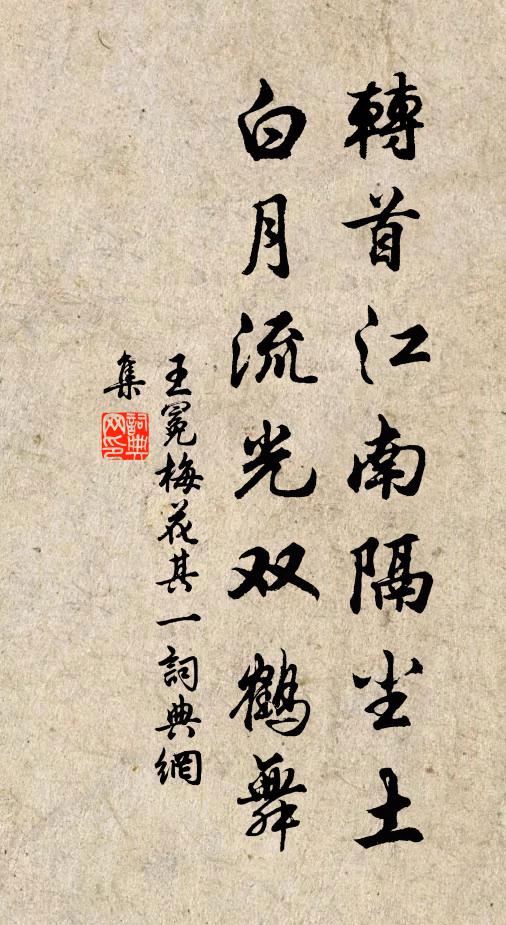 轉首江南隔尘土
白月流光双鶴舞
王冕梅花其一詞典網
集
詞典
网印